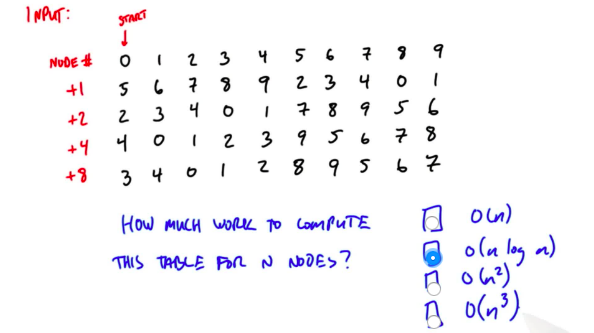 INPUT:
START
NODE # 0 1 2 3 4 5 6 7 8 9
+1 5 6 7 8 9 2 3 4 0 1
+2 2 3 4 0 1 7 8 9 5 6
+4 4 0 1 2 3 9 5 6 7 8
+8 3 4 0 1 2 8 9 5 6 7
HOW MUCH WORK TO COMPUTE
THIS TABLE FOR N NODES?
O(n)
O(n log n)
O(n²)
O(n³)